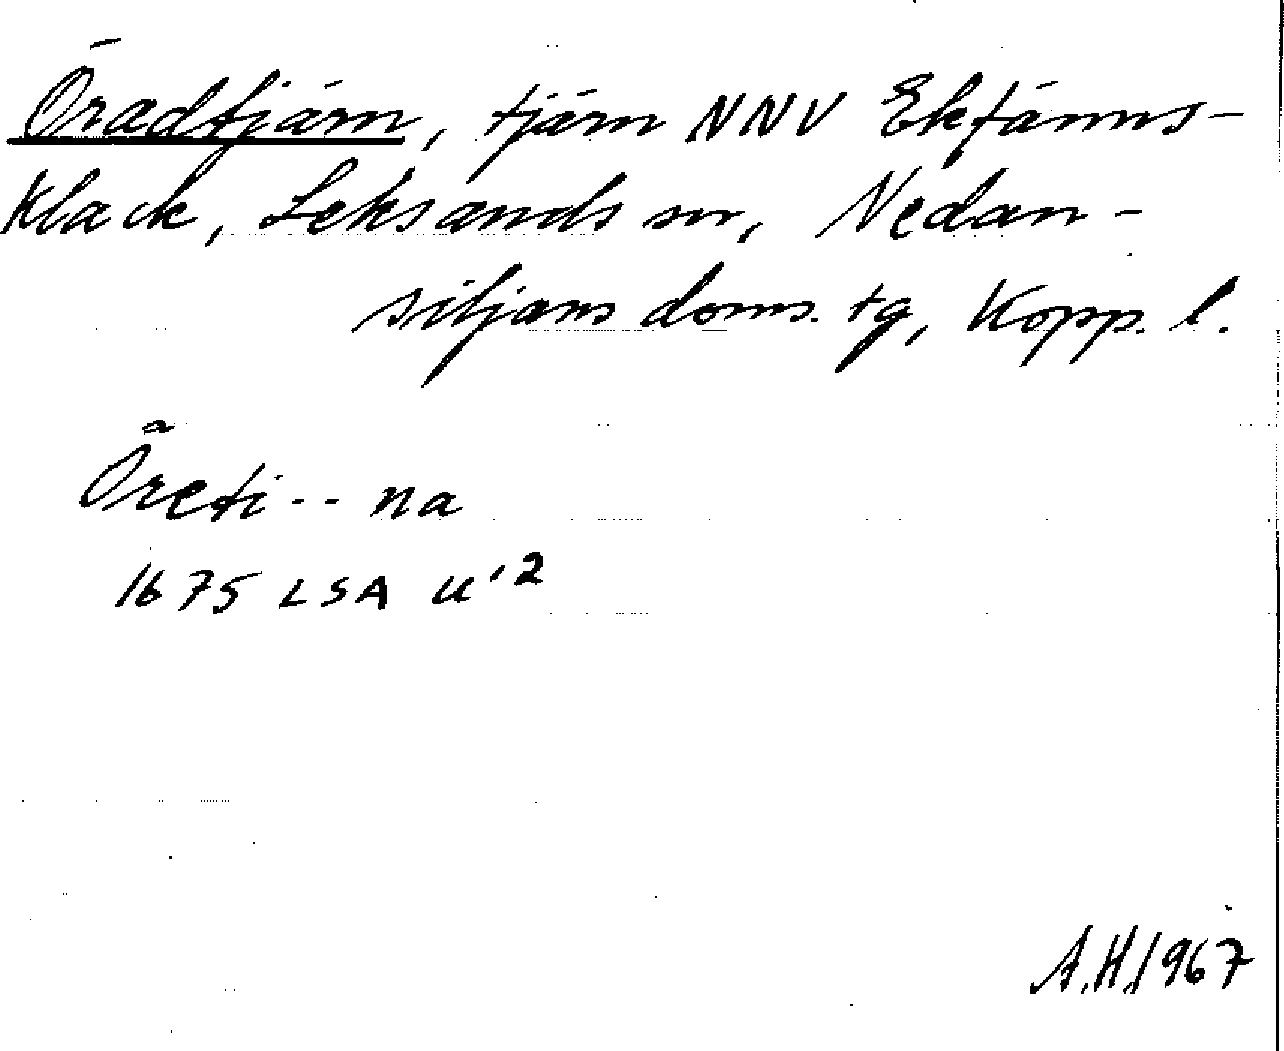 Öradtjärn, tjärn NNV Ektänns-
Klack, Leksands sn, Nedan-
siljans doms. tg, Kopp. l.
Öreti -- na
1675 LSA U'2
A.H. 1967